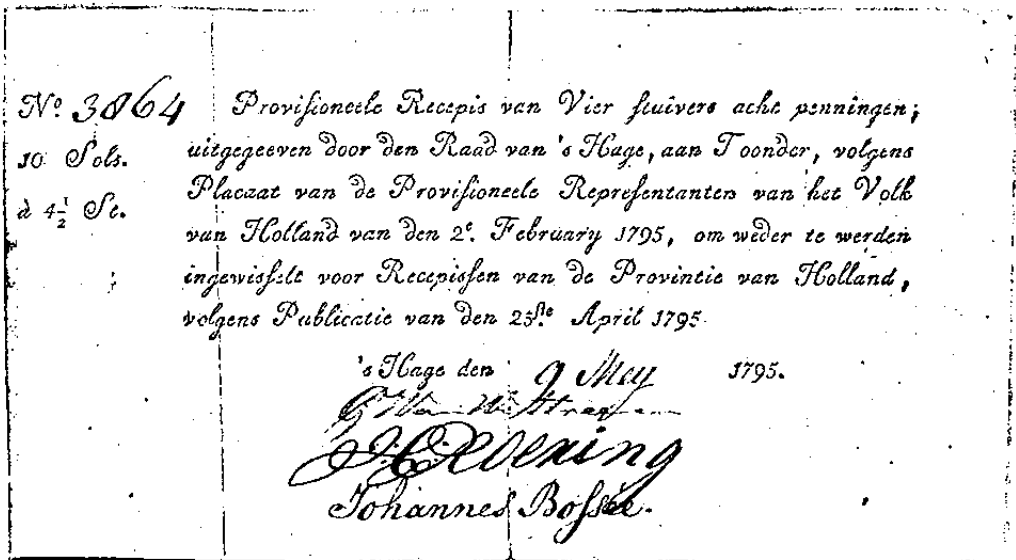 Nº 3864
10 Sols.
à 4½ St.
Provisioneele Recepis van Vier stuivers acht penningen;
uitgegeeven door den Raad van 's Hage, aan Toonder, volgens
Placaat van de Provisioneele Representanten van het Volk
van Holland van den 2e. February 1795, om weder te werden
ingewisselt voor Recepissen van de Provintie van Holland,
volgens Publicatie van den 25ste. April 1795
's Hage den 9 Mey 1795.
Johannes Bossee.